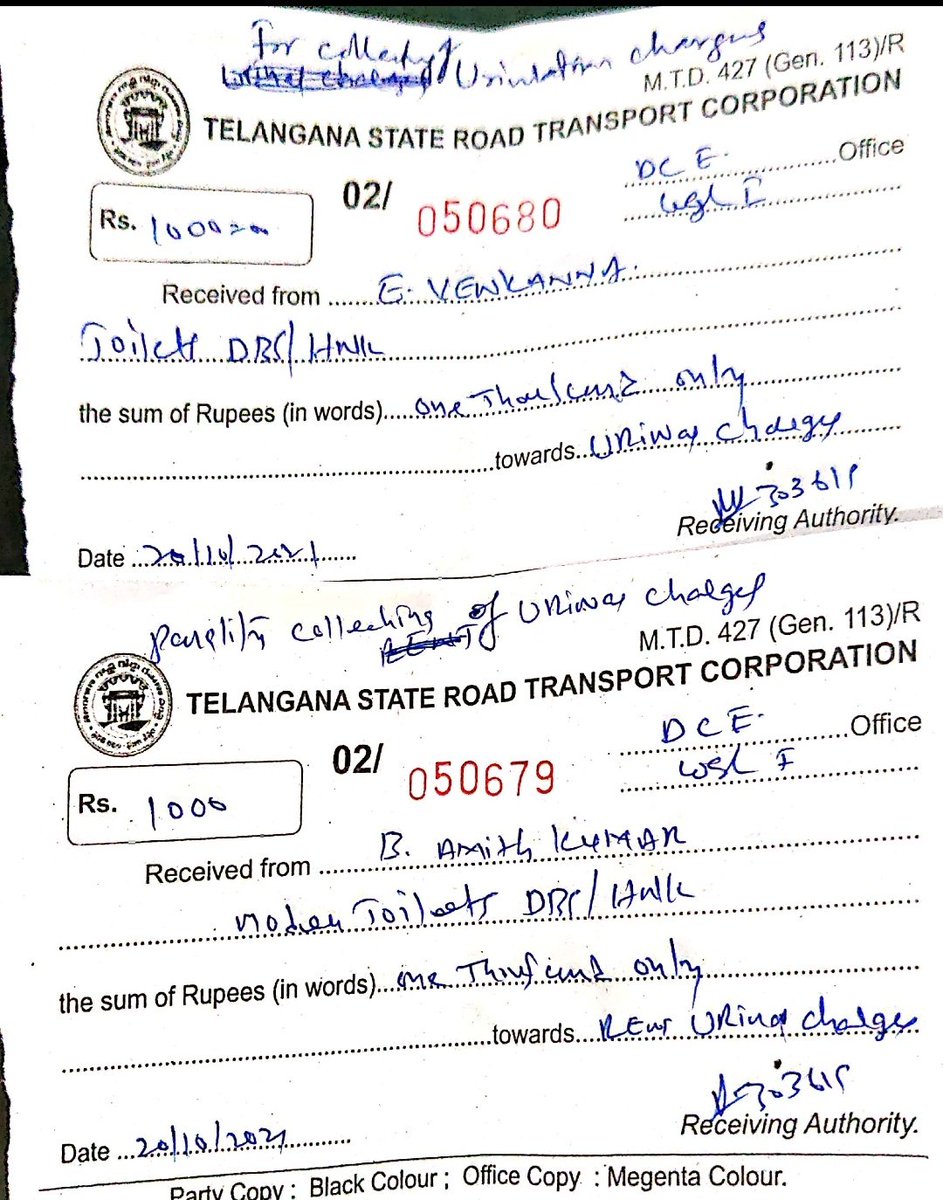 For collectg Urination charges
M.T.D. 427 (Gen. 113)/R
TELANGANA STATE ROAD TRANSPORT CORPORATION
DCE. Office
Rs. 1000=00 02/ 050680 WGL I
Received from E. VENKANNA.
Toilets DBS/HNK
the sum of Rupees (in words) one Thousand only
towards URinas charges
303619
Receiving Authority.
Date 20/10/2021
Panality collecting of URinas charges
M.T.D. 427 (Gen. 113)/R
TELANGANA STATE ROAD TRANSPORT CORPORATION
DCE. Office
Rs. 1000 02/ 050679 WGL I
Received from B. AMith KUMAR
Moden Toileets DBS/HNK
the sum of Rupees (in words) one Thousand only
towards REnt URinas charges
303619
Receiving Authority.
Date 20/10/2021
Party Copy : Black Colour ; Office Copy : Megenta Colour.